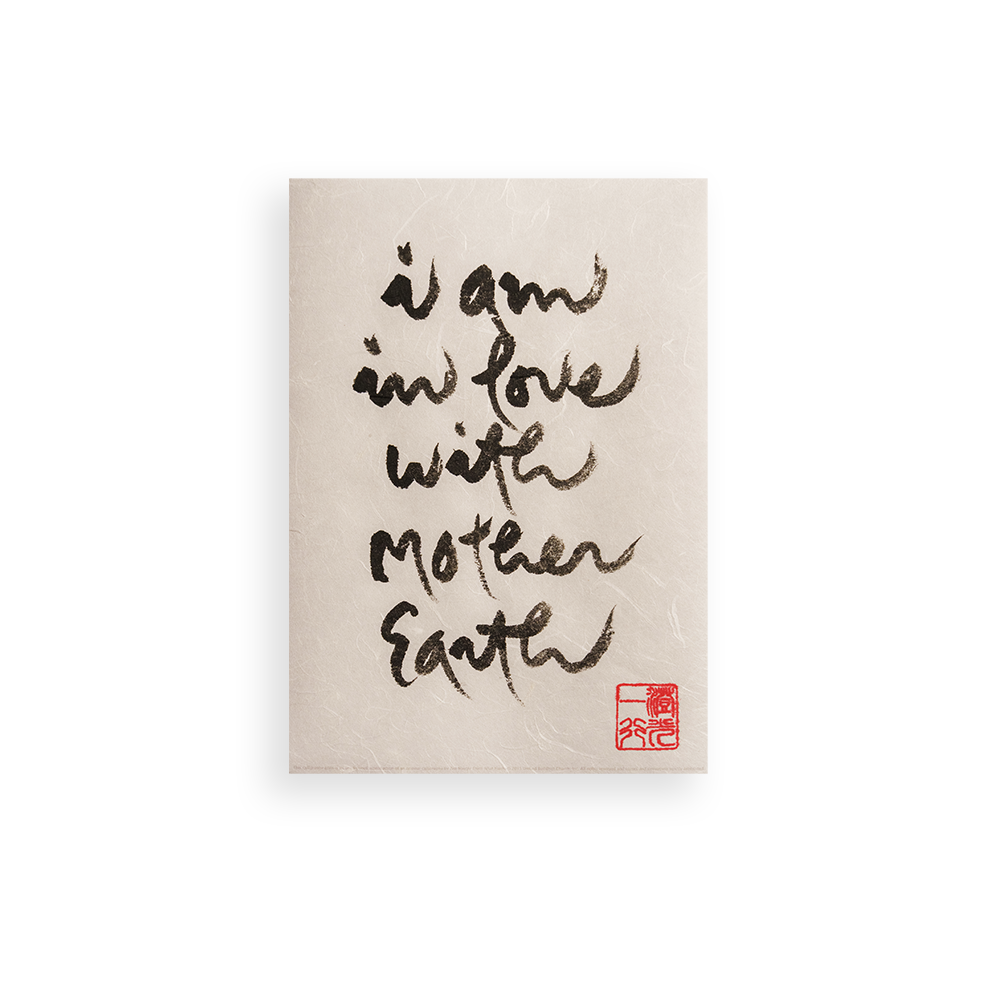 i am
in love
with
Mother
Earth
澄光
一行